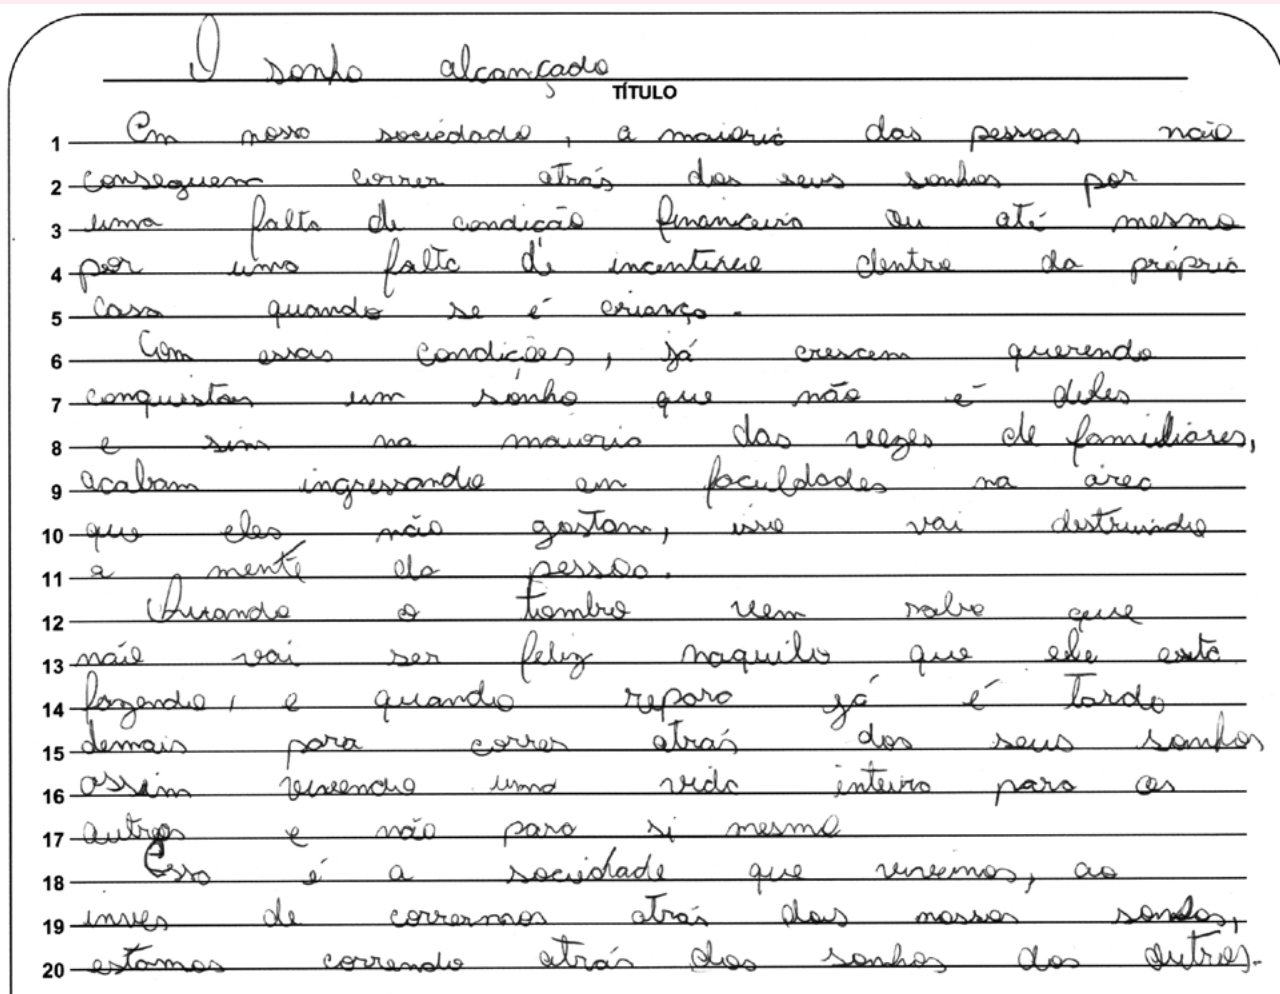 O sonho alcançado
TÍTULO
1 Em nossa sociedade, a maioria das pessoas não
2 conseguem correr atrás dos seus sonhos por
3 uma falta de condição financeira ou até mesmo
4 por uma falta de incentivo dentro da própria
5 casa quando se é criança.
6 Com essas condições, já crescem querendo
7 conquistar um sonho que não é deles
8 e sim na maioria das vezes de familiares,
9 acabam ingressando em faculdades na área
10 que eles não gostam, isso vai destruindo
11 a mente da pessoa.
12 Quando o tombo vem sabe que
13 não vai ser feliz naquilo que ele está
14 fazendo, e quando repara já é tarde
15 demais para correr atrás dos seus sonhos
16 assim vivendo uma vida inteira para os
17 outros e não para si mesmo
18 Essa é a sociedade que vivemos, ao
19 inves de corrermos atrás dos nossos sonhos,
20 estamos correndo atrás dos sonhos dos outros.